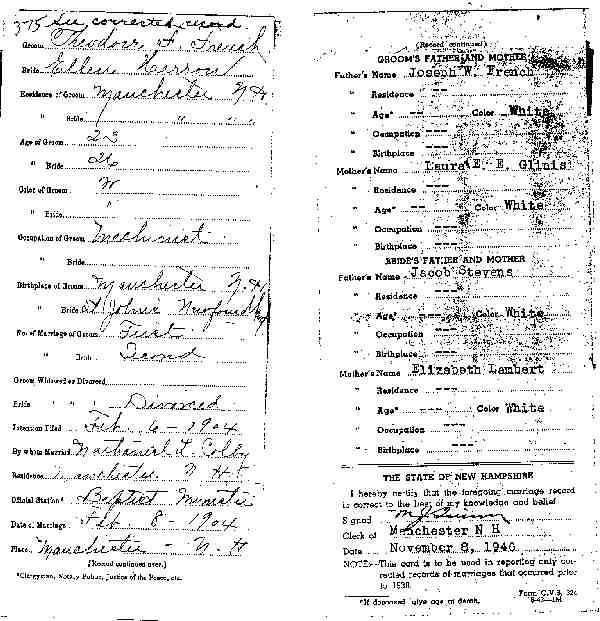 3-75 See corrected record
Groom Theodore F. French
Bride Ellen Herron
Residence of Groom Manchester N.H.
" Bride " " "
Age of Groom 23
" Bride 26
Color of Groom W
" Bride "
Occupation of Groom Machinist
" Bride
Birthplace of Groom Manchester N.H
" Bride St. Johns Newfoundland
No. of Marriage of Groom First
" Bride Second
Groom Widowed or Divorced
Bride " " " Divorced
Intention Filed Feb. 6 - 1904
By whom Married Nathaniel L. Colby
Residence Manchester N H
Official Station* Baptist Minister
Date of Marriage Feb 8 - 1904
Place Manchester - N. H
(Record continued over.)
*Clergyman, Notary Public, Justice of the Peace, etc.
(Record continued)
GROOM'S FATHER AND MOTHER
Father's Name Joseph W. French
" Residence ---
" Age* --- Color White
" Occupation ---
" Birthplace ---
Mother's Name Laura E. Glinis
" Residence ---
" Age* --- Color White
" Occupation ---
" Birthplace ---
BRIDE'S FATHER AND MOTHER
Father's Name Jacob Stevens
" Residence ---
" Age* --- Color White
" Occupation ---
" Birthplace ---
Mother's Name Elizabeth Lambert
" Residence ---
" Age* --- Color White
" Occupation ---
" Birthplace ---
THE STATE OF NEW HAMPSHIRE
I hereby certify that the foregoing marriage record
is correct to the best of my knowledge and belief.
Signed
Clerk of Manchester N H
Date November 8, 1946
NOTE--This card is to be used in reporting only cor-
rected records of marriages that occurred prior
to 1938.
Form C.V.S. 324
*If deceased give age at death.